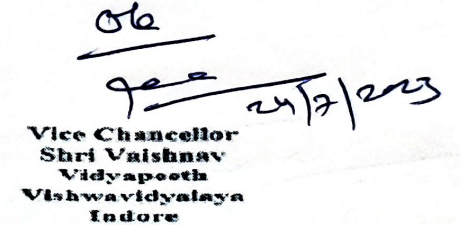 Ok
24/7/2023
Vice Chancellor
Shri Vaishnav
Vidyapeeth
Vishwavidyalaya
Indore